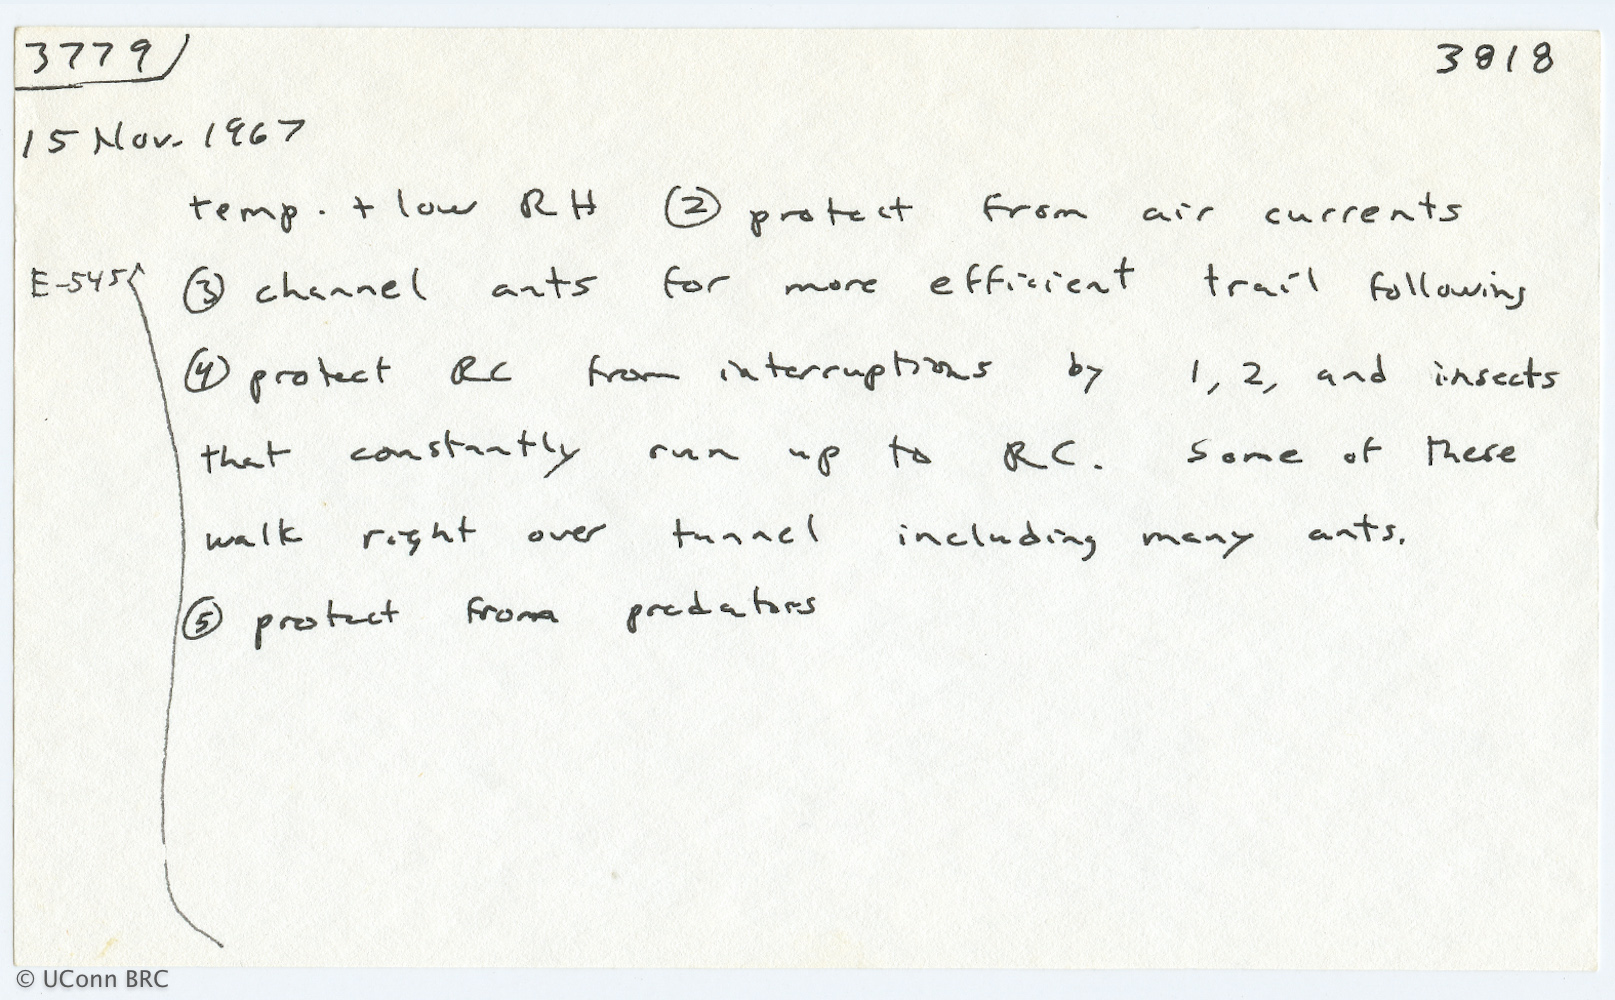 3779 3818
15 Nov. 1967
temp. + low RH ② protect from air currents
E-545 ③ channel ants for more efficient trail following
④ protect RC from interruptions by 1, 2, and insects
that constantly run up to RC. Some of these
walk right over tunnel including many ants.
⑤ protect from predators
© UConn BRC